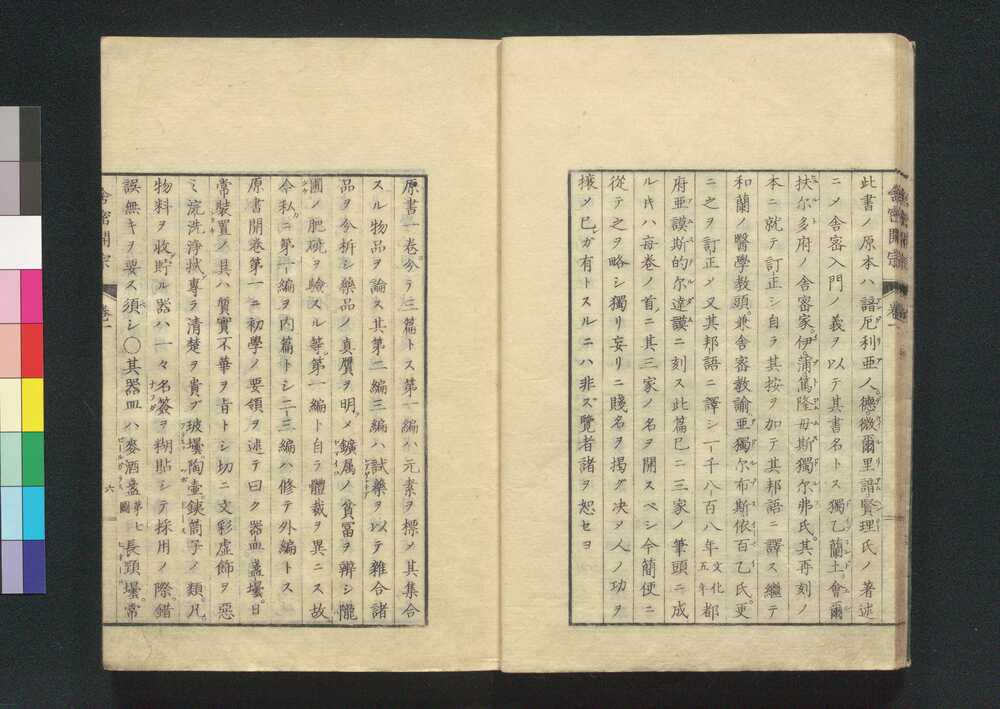 此書ノ原本ハ諳厄利亜ノ德微爾里諳賢理氏ノ著述
ニメ舎密入門ノ義ヲ以テ其書名トス獨乙蘭土會爾
扶尔多府ノ舎密家伊蒲篤隆毋斯獨尔弗氏其再刻ノ
本ニ就テ訂正シ自ラ其按ヲ加テ其邦語ニ譯ス継テ
和蘭ノ醫學教頭兼舎密教諭亜獨尔布斯依百乙氏更
ニ之ヲ訂正シ又其邦語ニ譯シ一千八百八年文化五年都
府亜謨斯的尔達謨ニ刻ス此篇已ニ三家ノ筆頭ニ成
ル氏ハ毎巻ノ首ニ其三家ノ名ヲ開スベシ今簡便ニ
從テ之ヲ略シ獨リ妄リニ賤名ヲ掲グ决メ人ノ功ヲ
攘メ已ガ有トスルニハ非ズ覽者諸ヲ恕セヨ
舎密開宗
巻一
原書一巻今分テ三篇トス第一編ハ元素ヲ標メ其集合
スル物品ヲ論ス其第二編三編ハ試藥ヲ以テ雜合諸
品ヲ分析シ藥品ノ真贋ヲ明メ鑛属ノ貧冨ヲ辨シ隴
圃ノ肥硗ヲ驗スル等第一編ト自ラ體裁ヲ異ニス故
今私ニ第一編ヲ内篇トシ二三編ハ修テ外編トス
原書開巻第一ニ初學ノ要領ヲ述テ曰ク器皿盞壜日
常装置ノ具ハ質實不華ヲ旨トシ切ニ文彩虚飾ヲ惡
ミ流洗浄拭專ラ清楚ヲ貴ブ玻壜陶壷鋏筒子ノ類凡
物料ヲ收貯ル器ハ一々名簽ヲ糊貼シテ採用ノ際錯
誤無キヲ要ス須シ〇其器皿ハ麥酒盞第七圖長頸壜常
舎密開宗
巻一
六